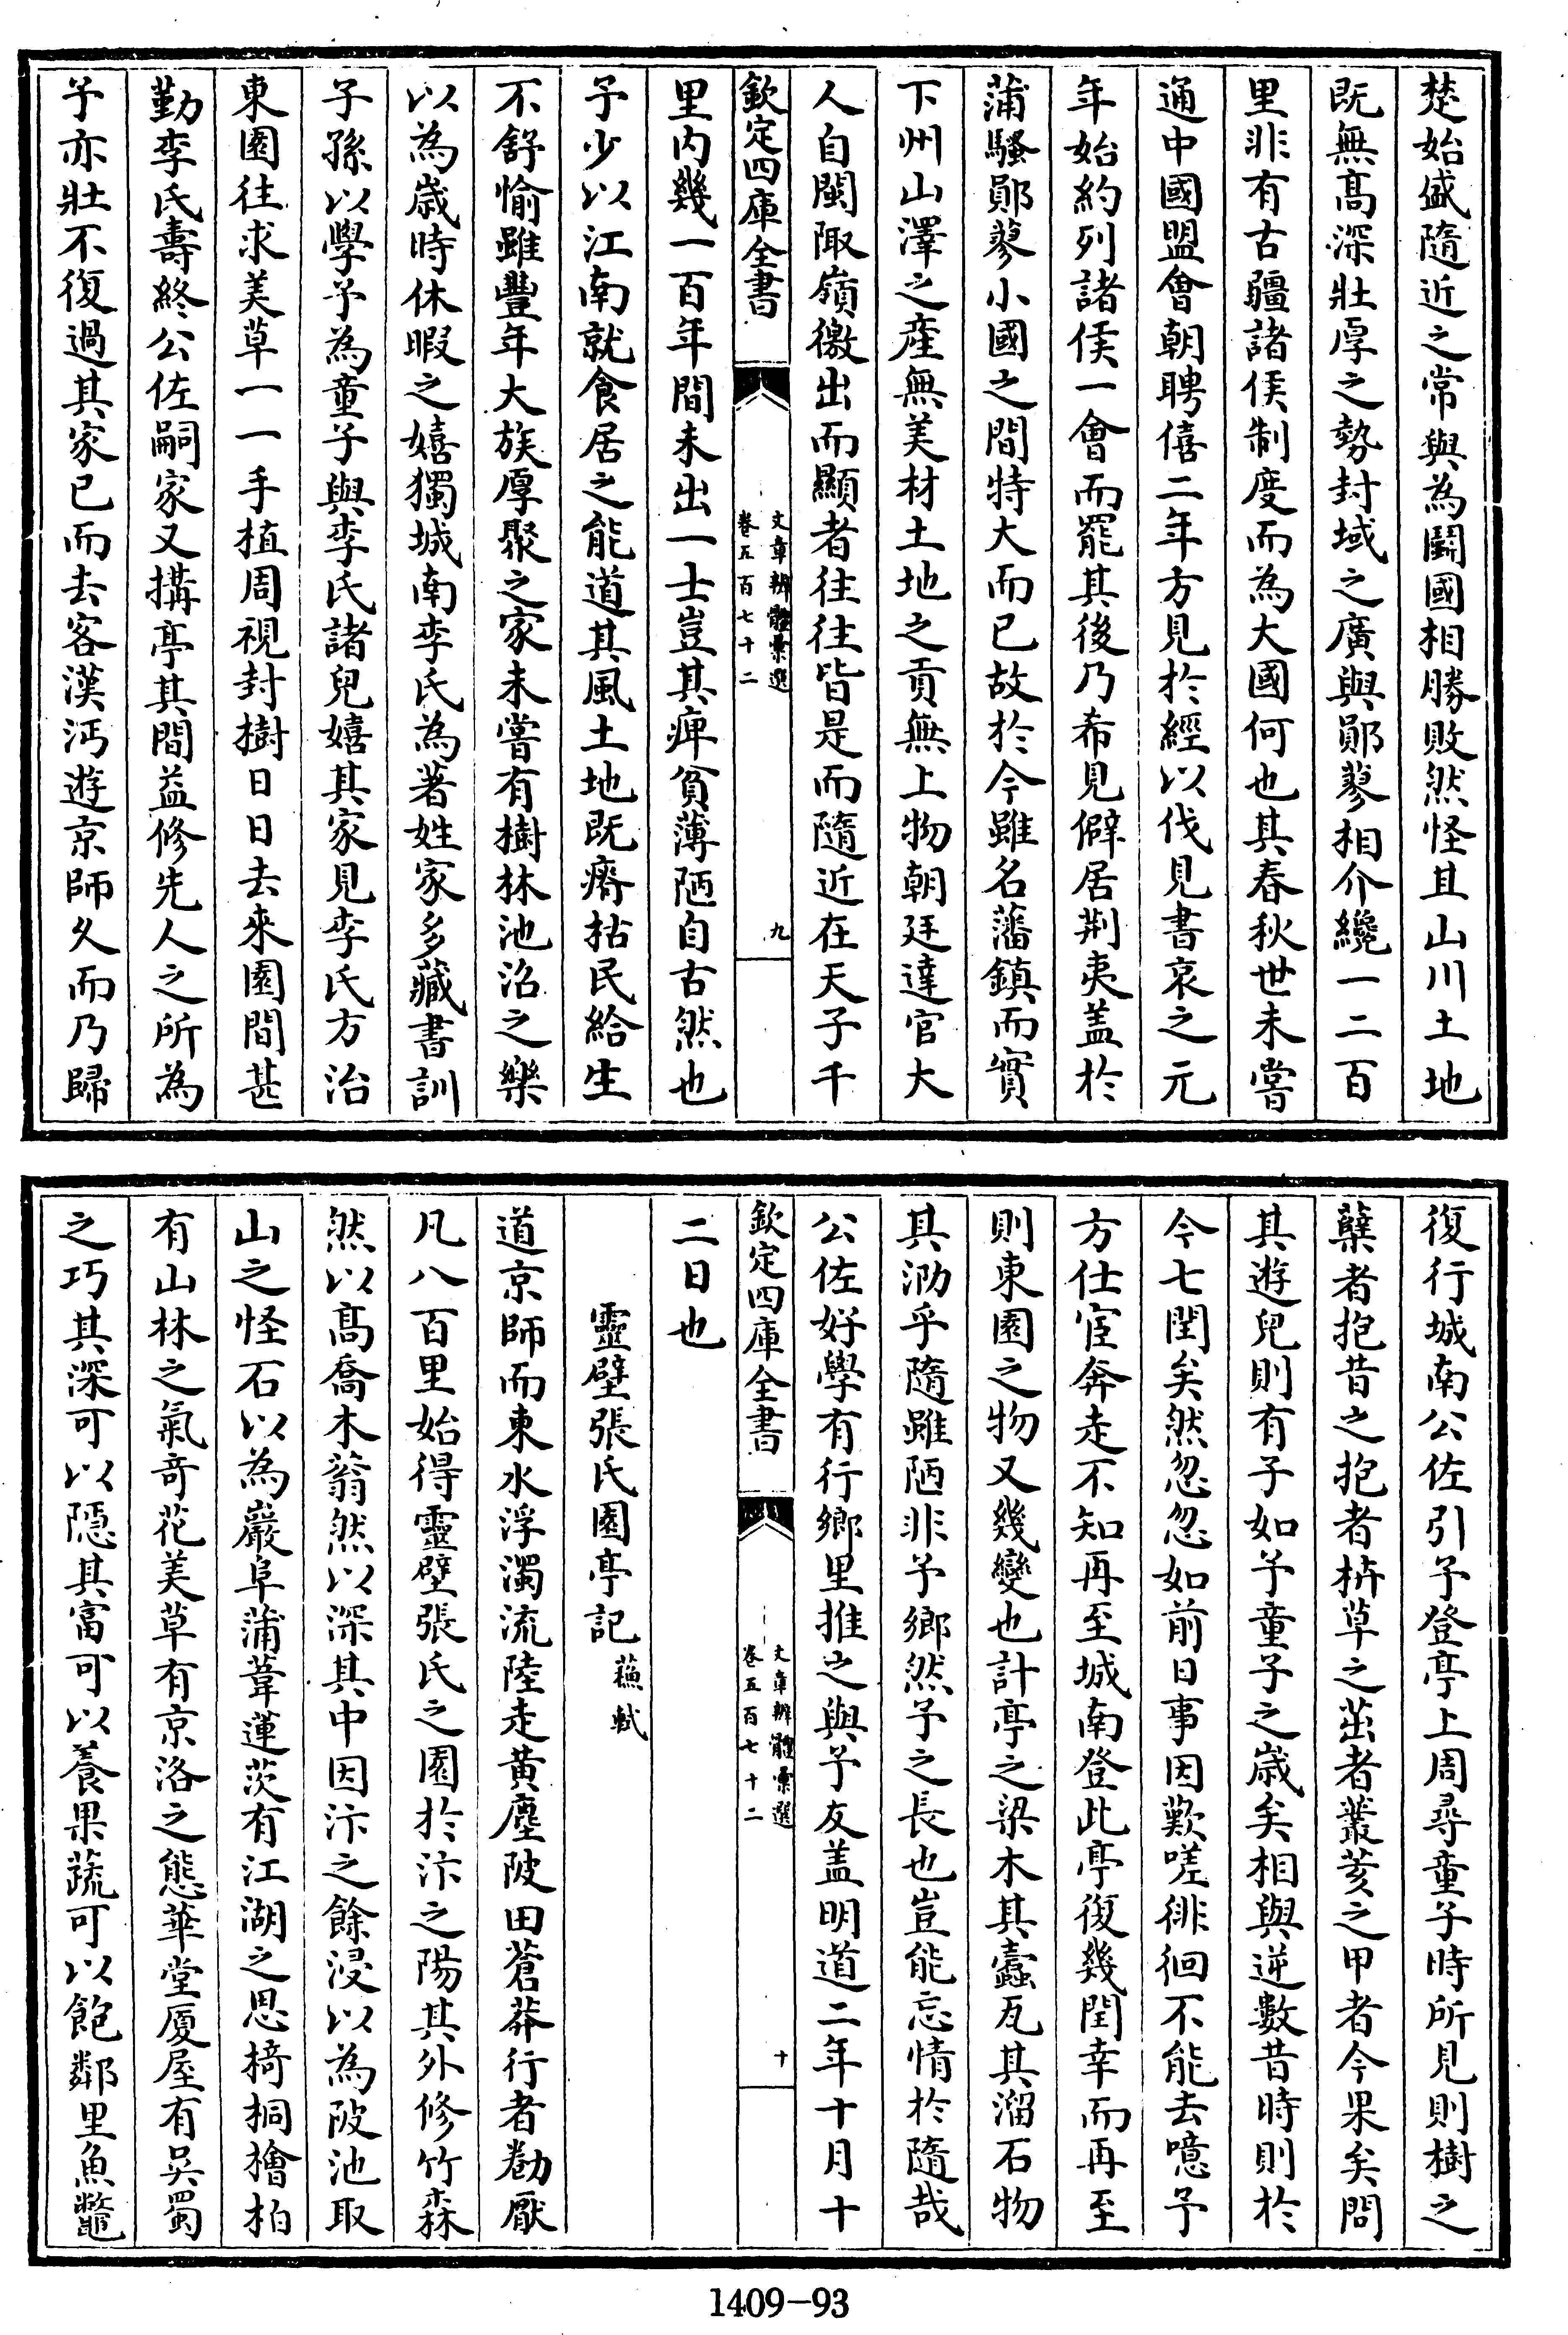 楚始盛隨近之常與為鬬國相勝敗然怪且山川土地
既無髙深壯厚之勢封域之廣與鄖蓼相介纔一二百
里非有古疆諸侯制度而為大國何也其春秋世未嘗
通中國盟會朝聘僖二年方見於經以伐見書哀之元
年始約列諸侯一會而罷其後乃希見僻居荆夷盖於
蒲騷鄖蓼小國之間特大而已故於今雖名藩鎮而實
下州山澤之産無美材土地之貢無上物朝廷達官大
人自閩陬嶺徼出而顯者往往皆是而隨近在天子千
欽定四庫全書
文章辨體彙選
卷五百七十二
九
里内幾一百年間未出一士豈其痺貧薄陋自古然也
予少以江南就食居之能道其風土地既瘠枯民給生
不舒愉雖豐年大族厚聚之家未嘗有樹林池沼之樂
以為歳時休暇之嬉獨城南李氏為著姓家多藏書訓
子孫以學予為童子與李氏諸兒嬉其家見李氏方治
東園往求美草一一手植周視封樹日日去來園間甚
勤李氏壽終公佐嗣家又搆亭其間益修先人之所為
予亦壯不復過其家已而去客漢沔遊京師久而乃歸
復行城南公佐引予登亭上周尋童子時所見則樹之
蘖者抱昔之抱者枿草之茁者叢荄之甲者今果矣問
其遊兒則有子如予童子之歳矣相與逆數昔時則於
今七閏矣然忽忽如前日事因歎嗟徘徊不能去噫予
方仕宦奔走不知再至城南登此亭復幾閏幸而再至
則東園之物又幾變也計亭之梁木其蠹瓦其溜石物
其泐乎隨雖陋非予鄉然予之長也豈能忘情於隨哉
公佐好學有行鄉里推之與予友盖明道二年十月十
欽定四庫全書
文章辨體彙選
卷五百七十二
十
二日也
靈壁張氏園亭記 蘓軾
道京師而東水浮濁流陸走黄塵陂田蒼莽行者勌厭
凡八百里始得靈壁張氏之園於汴之陽其外修竹森
然以髙喬木蓊然以深其中因汴之餘浸以為陂池取
山之怪石以為巖阜蒲葦蓮茨有江湖之思椅桐檜柏
有山林之氣奇花美草有京洛之態華堂厦屋有吳蜀
之巧其深可以隱其富可以養果蔬可以飽鄰里魚鼈
1409-93